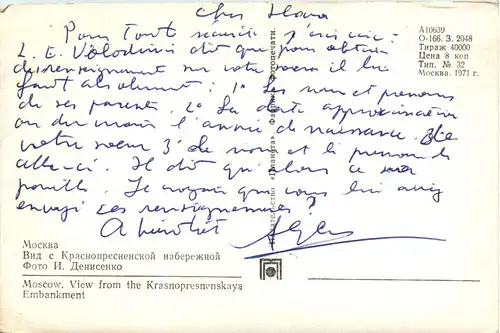 Cher
Pour Tout sécurité j'écris ici
L. E. Volodine dit que pour obtenir
des renseignements sur votre soeur il lui
faut absolument : 1° Les nom et prénoms
de ses parents. 2° La date approximative
ou du moins l'année de naissance de
votre soeur 3° le nom et le prénom de
celle-ci. Il dit que dans ce cas
Je croyais que vous lui aviez
envoyé ces renseignements?
A bientôt
А10639
О-166. З. 2048
Тираж 40000
Цена 8 коп
Тип. № 32
Москва. 1971 г.
Издательство «Планета» Фабрика Фотопечати.
Москва
Вид с Краснопресненской набережной
Фото И. Денисенко
Moscow. View from the Krasnopresnenskaya
Embankment